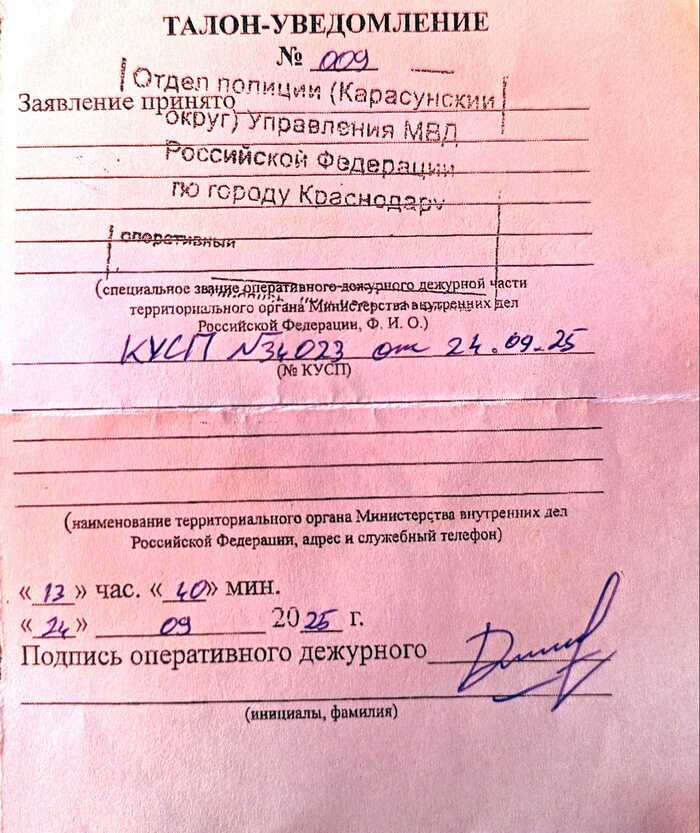 ТАЛОН-УВЕДОМЛЕНИЕ
№ 009
Отдел полиции (Карасунский
Заявление принято
округ) Управления МВД
Российской Федерации
по городу Краснодару
оперативный
(специальное звание оперативного дежурного дежурной части
территориального органа Министерства внутренних дел
Российской Федерации, Ф. И. О.)
КУСП №34023 от 24.09.25
(№ КУСП)
(наименование территориального органа Министерства внутренних дел
Российской Федерации, адрес и служебный телефон)
«13» час. «40» мин.
«24» 09 2025 г.
Подпись оперативного дежурного
(инициалы, фамилия)